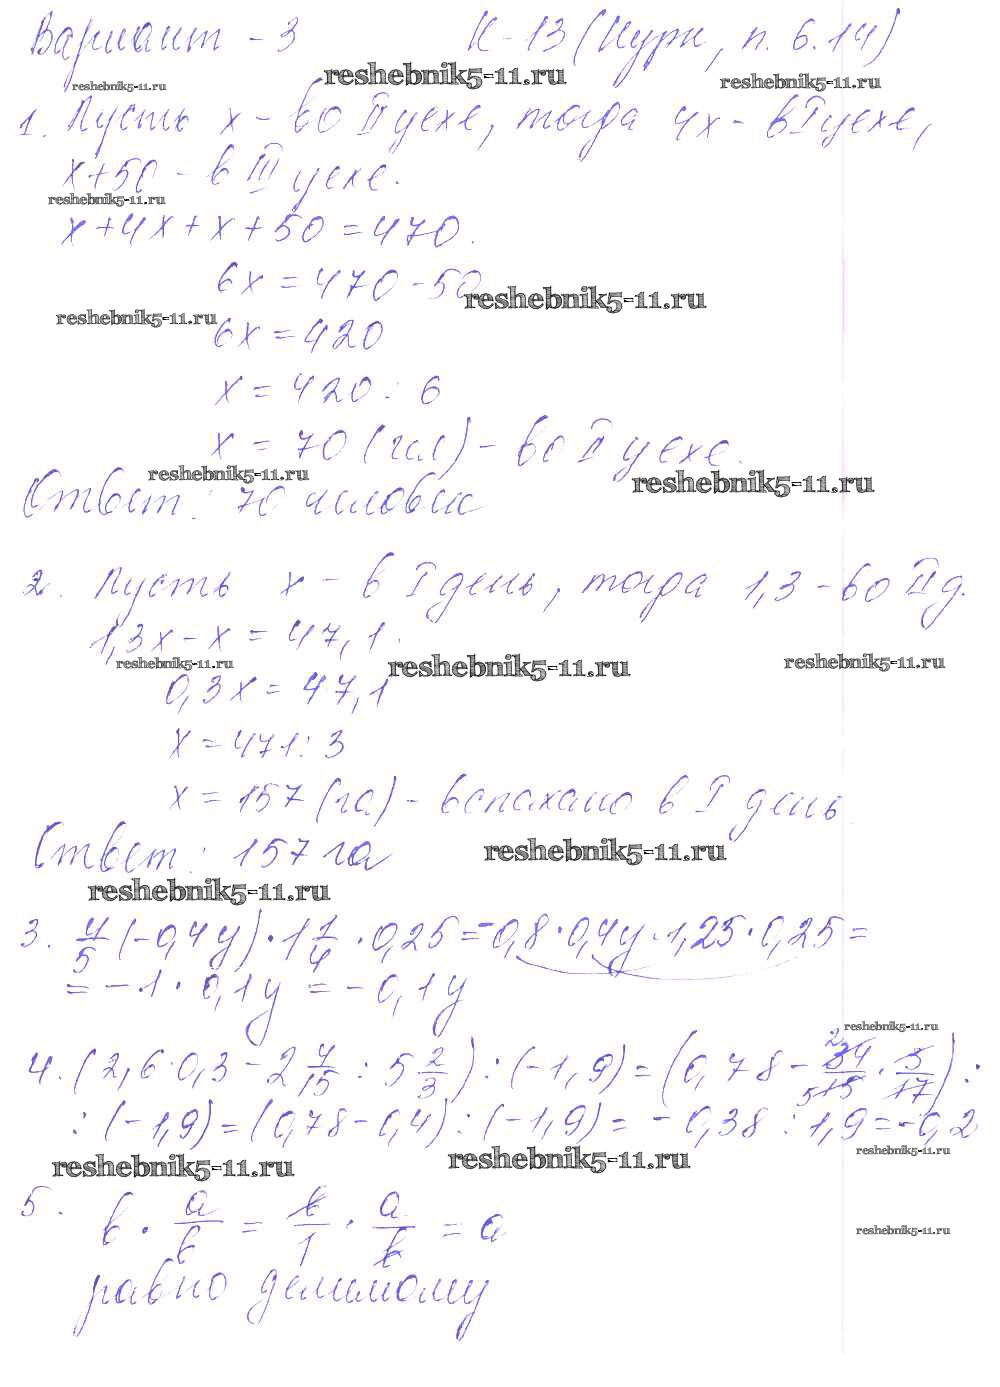 Вариант - 3 К-13 (Нурк, п. 6.14)
reshebnik5-11.ru reshebnik5-11.ru reshebnik5-11.ru
1. Пусть x - во II цехе, тогда 4x - в I цехе,
x+50 - в III цехе.
reshebnik5-11.ru
x+4x+x+50=470.
6x=470-50
reshebnik5-11.ru
reshebnik5-11.ru
6x=420
x=420:6
x=70 (чел) - во II цехе.
reshebnik5-11.ru reshebnik5-11.ru
Ответ: 70 человек
2. Пусть x - в I день, тогда 1,3 - во II д.
1,3x-x=47,1.
reshebnik5-11.ru reshebnik5-11.ru reshebnik5-11.ru
0,3x=47,1
x=471:3
x=157 (га) - вспахано в I день.
Ответ: 157 га
reshebnik5-11.ru
reshebnik5-11.ru
3. 4/5 (-0,4y) · 1 1/4 · 0,25 = -0,8 · 0,4y · 1,25 · 0,25 =
= -1 · 0,1y = -0,1y
reshebnik5-11.ru
4. (2,6·0,3 - 2 4/15 : 5 2/3) : (-1,9) = (0,78 - 34/15 · 3/17) :
: (-1,9) = (0,78-0,4) : (-1,9) = -0,38 : 1,9 = -0,2
reshebnik5-11.ru
reshebnik5-11.ru reshebnik5-11.ru
5. b · a/b = b/1 · a/b = a
reshebnik5-11.ru
равно делимому